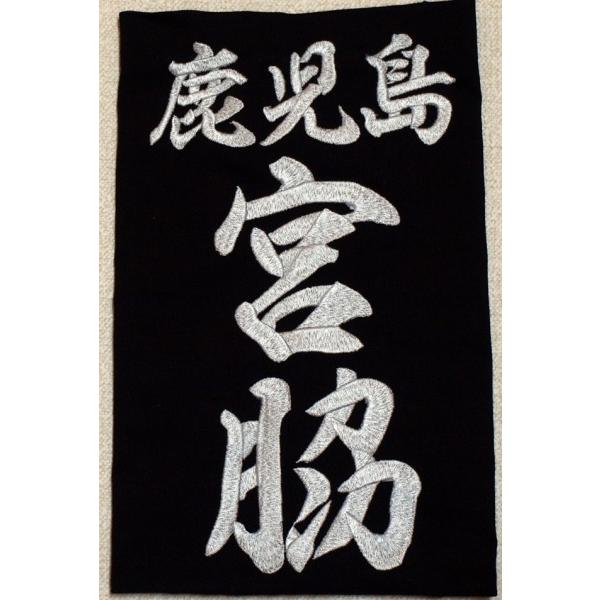 鹿児島
宮脇